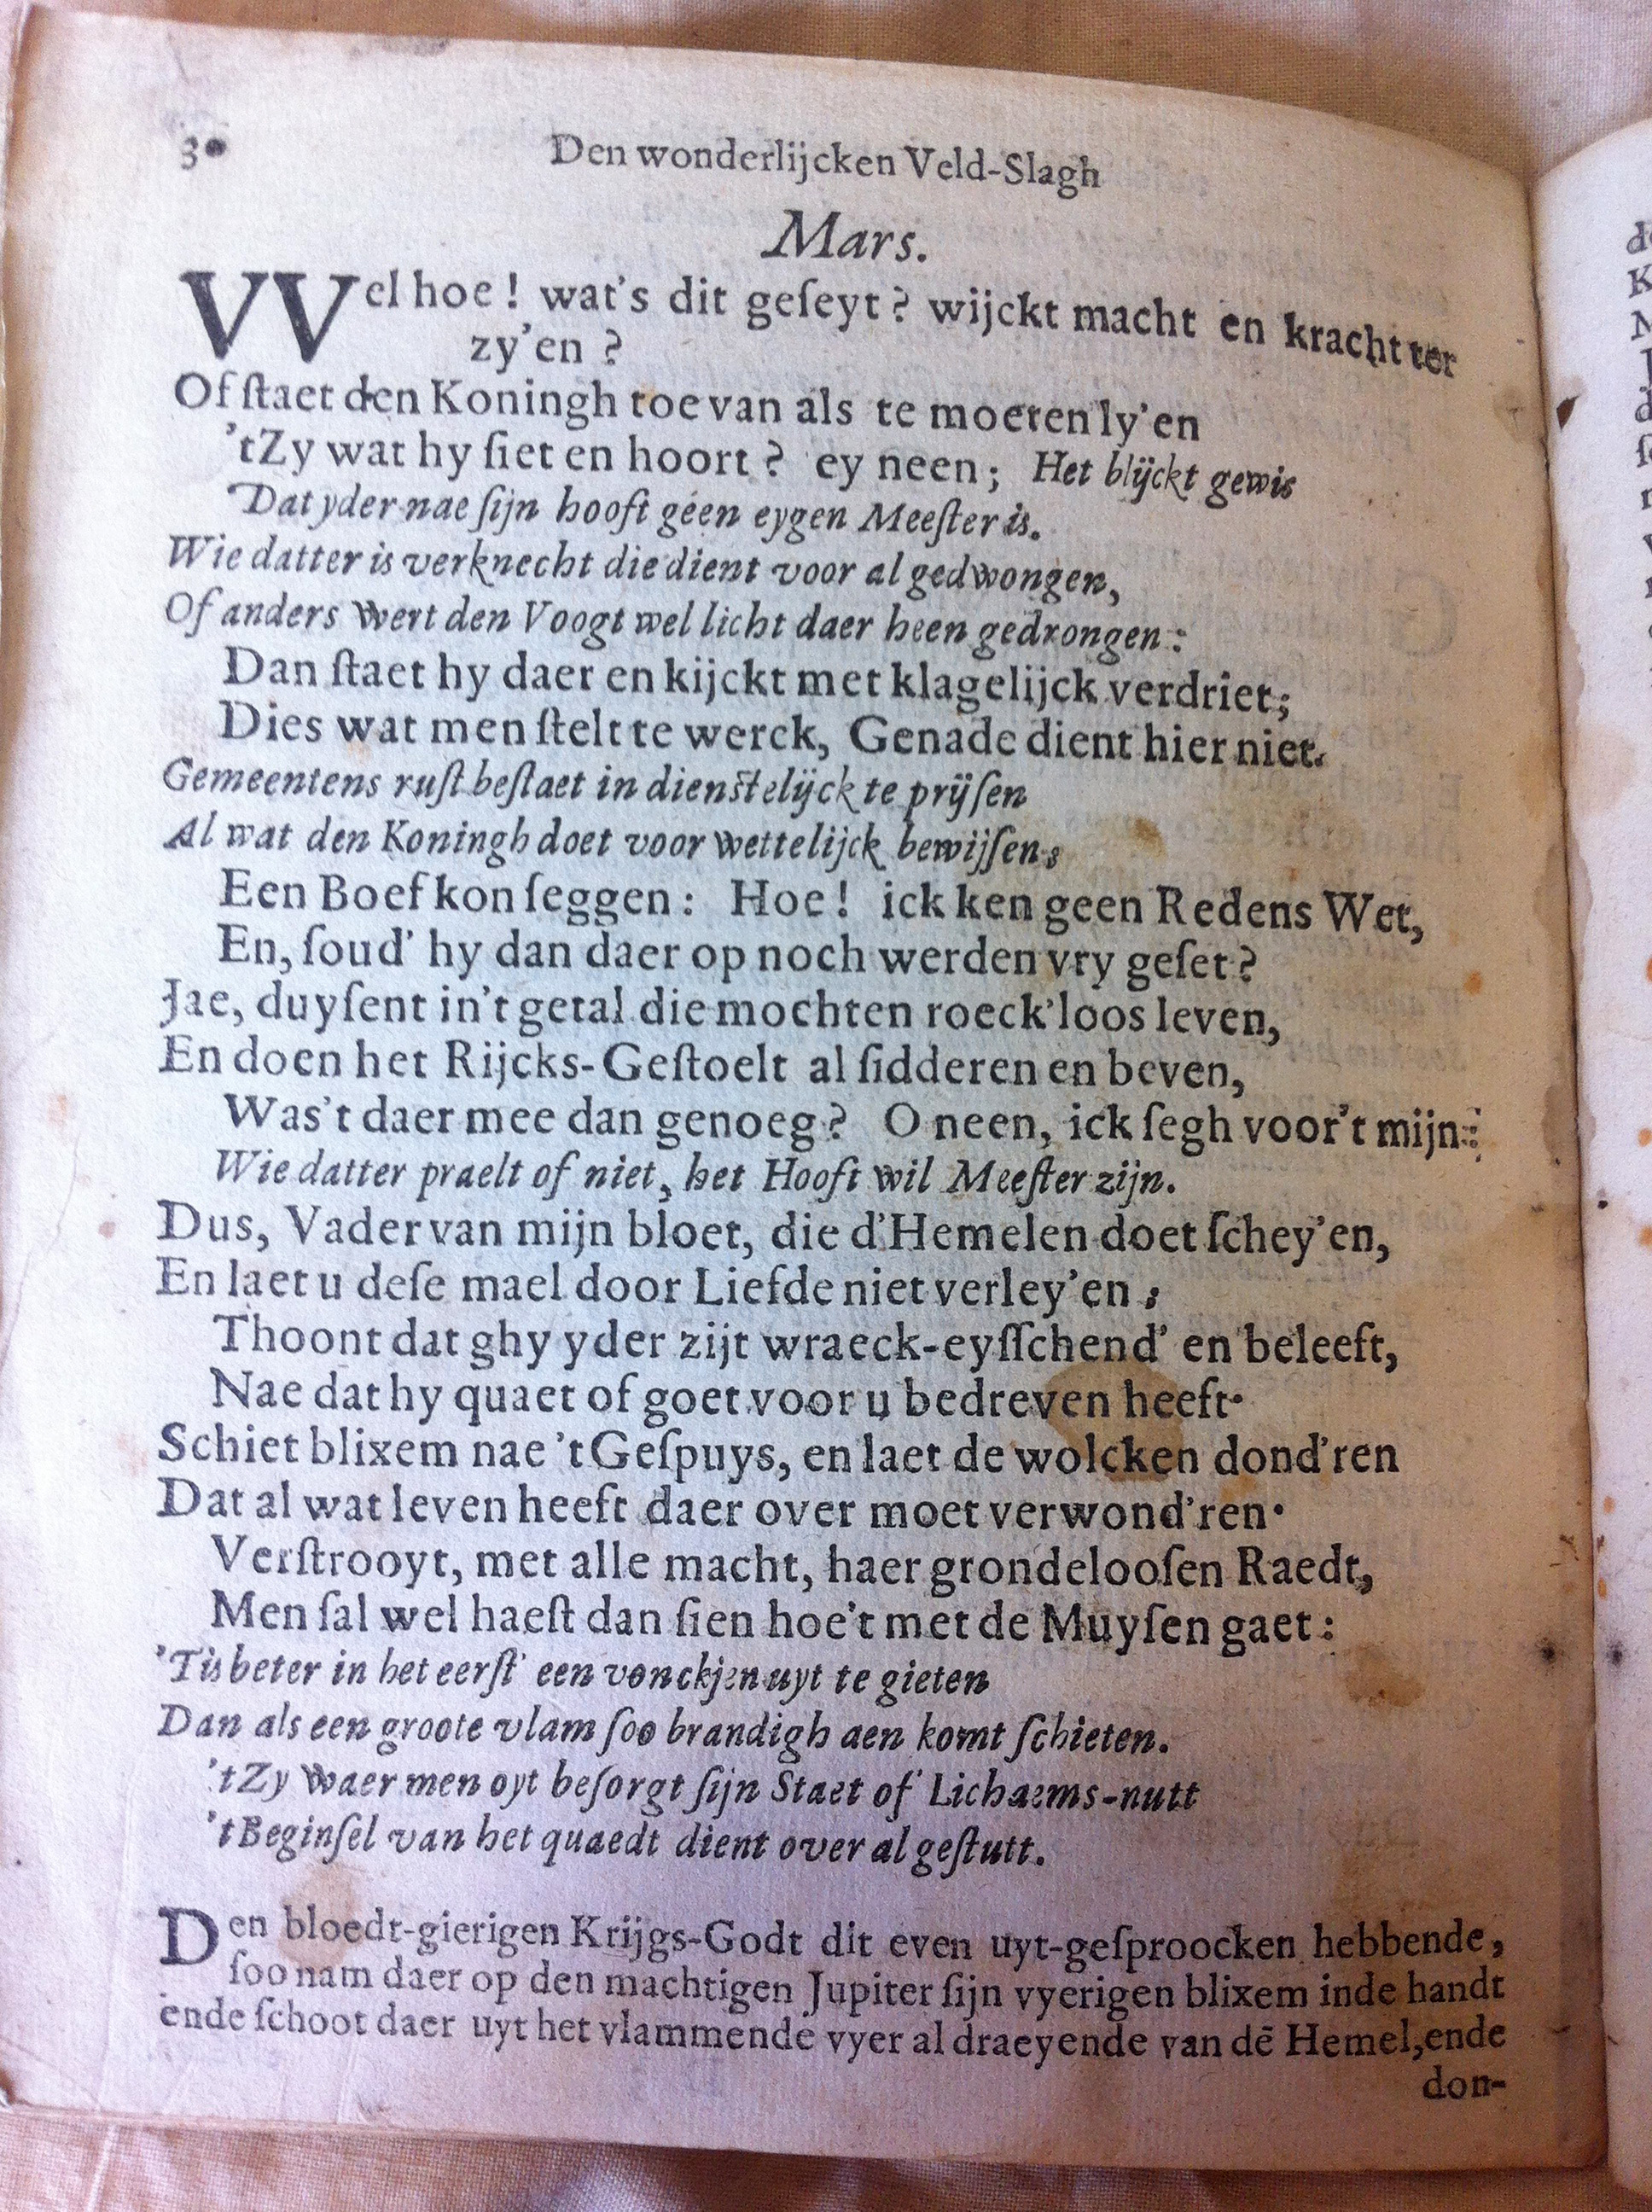 30 Den wonderlijcken Veld-Slagh
Mars.
VVel hoe! wat's dit geſeyt? wijckt macht en kracht ter
zy'en?
Of ſtaet den Koningh toe van als te moeten ly'en
'tZy wat hy ſiet en hoort? ey neen; Het blijckt gewis
Dat yder nae ſijn hooft geen eygen Meeſter is.
Wie datter is verknecht die dient voor al gedwongen,
Of anders wert den Voogt wel licht daer heen gedrongen:
Dan ſtaet hy daer en kijckt met klagelijck verdriet;
Dies wat men ſtelt te werck, Genade dient hier niet.
Gemeentens ruſt beſtaet in dienſtelijck te prijſen
Al wat den Koningh doet voor wettelijck bewijſen;
Een Boef kon ſeggen: Hoe! ick ken geen Redens Wet,
En, ſoud' hy dan daer op noch werden vry geſet?
Jae, duyſent in't getal die mochten roeck'loos leven,
En doen het Rijcks-Geſtoelt al ſidderen en beven,
Was't daer mee dan genoeg? O neen, ick ſegh voor't mijn:
Wie datter praelt of niet, het Hooft wil Meeſter zijn.
Dus, Vader van mijn bloet, die d'Hemelen doet ſchey'en,
En laet u deſe mael door Liefde niet verley'en;
Thoont dat ghy yder zijt wraeck-eyſſchend' en beleeft,
Nae dat hy quaet of goet voor u bedreven heeft.
Schiet blixem nae 't Geſpuys, en laet de wolcken dond'ren
Dat al wat leven heeft daer over moet verwond'ren.
Verſtrooyt, met alle macht, haer grondelooſen Raedt,
Men ſal wel haeſt dan ſien hoe't met de Muyſen gaet:
'Tis beter in het eerſt' een vonckjen uyt te gieten
Dan als een groote vlam ſoo brandigh aen komt ſchieten.
'tZy waer men oyt beſorgt ſijn Staet of Lichaems-nutt
't Beginſel van het quaedt dient over al geſtutt.
Den bloedt-gierigen Krijgs-Godt dit even uyt-geſproocken hebbende,
ſoo nam daer op den machtigen Jupiter ſijn vyerigen blixem inde handt
ende ſchoot daer uyt het vlammende vyer al draeyende van dē Hemel, ende
don-